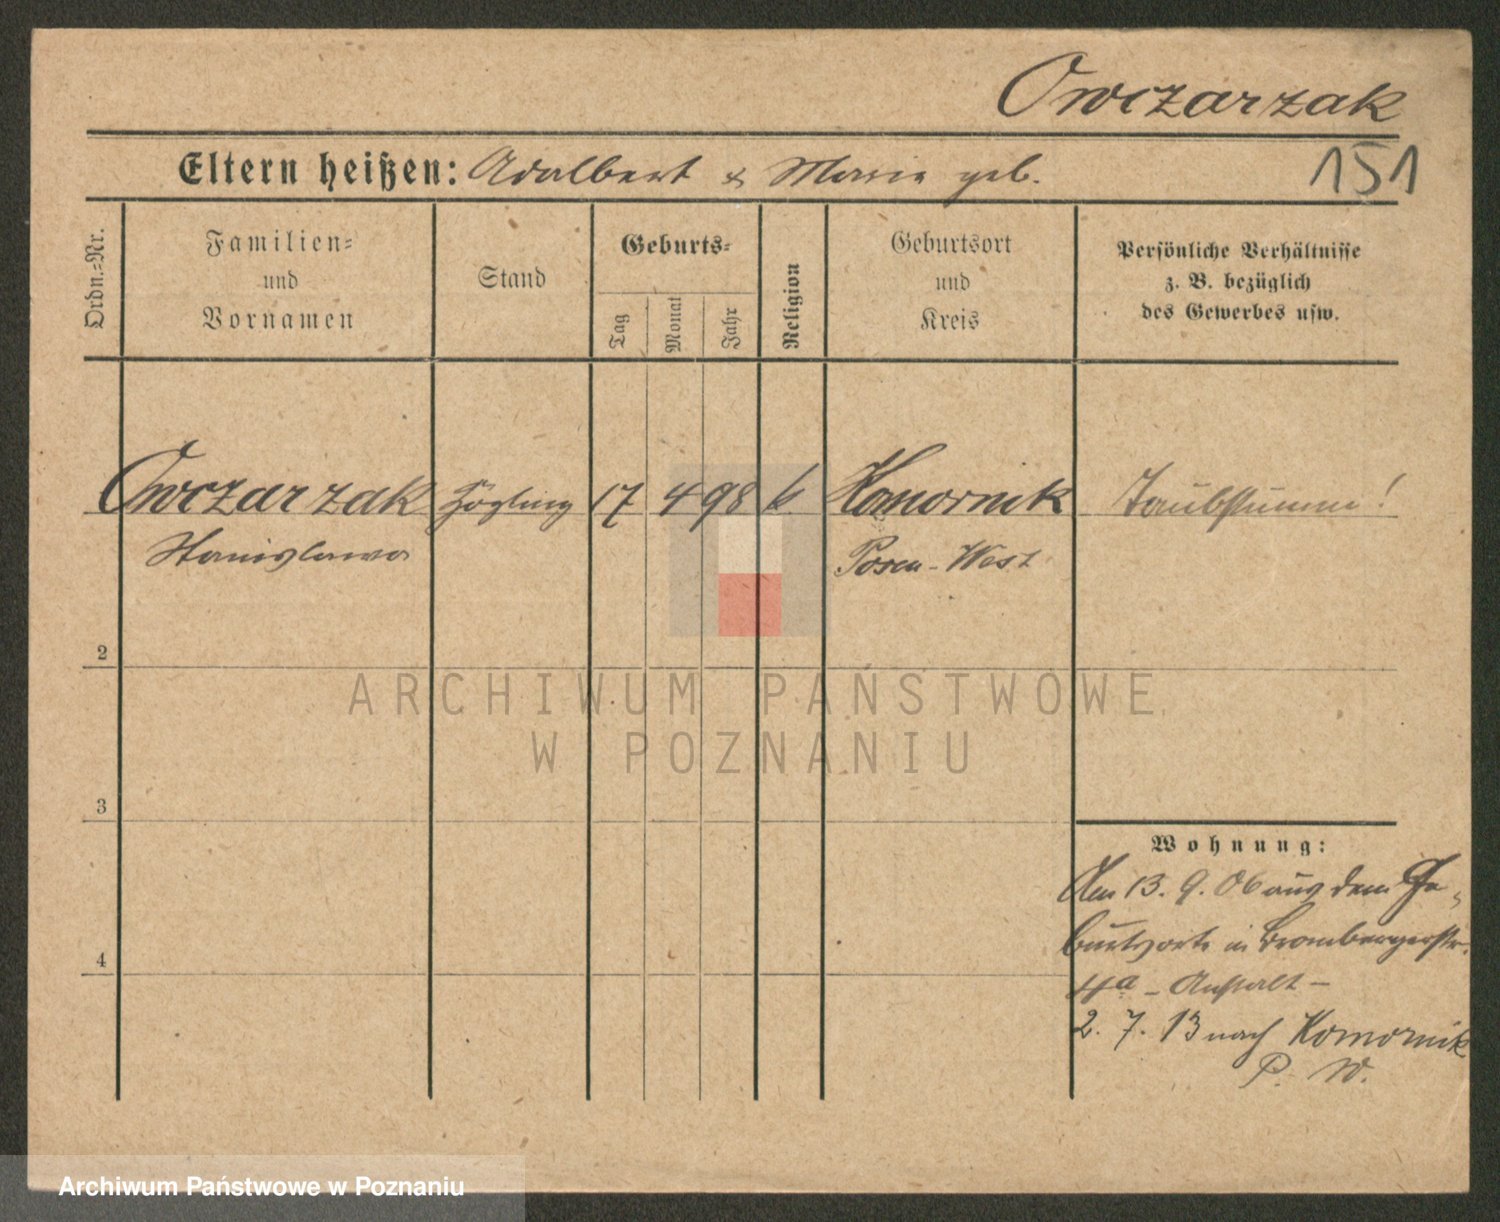 Owczarzak
Eltern heißen: Adalbert & Marie geb.
151
Ordn.-Nr.
Familien-
und
Vornamen
Stand
Geburts-
Tag
Monat
Jahr
Religion
Geburtsort
und
Kreis
Persönliche Verhältnisse
z. B. bezüglich
des Gewerbes usw.
Owczarzak Zögling 17 4 98 k Komornik Taubstumm!
Stanislawa Posen-West
2
3
4
Wohnung:
Am 13. 9. 06 aus dem Ge-
burtsorte in Brombergerstr.
4a - Anstalt -
2. 7. 13 nach Komornik
P. W.
ARCHIWUM PAŃSTWOWE
W POZNANIU
Archiwum Państwowe w Poznaniu